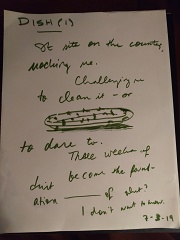 DISH (1)
It sits on the counter,
mocking me.
Challenging me
to clean it - or
to dare to.
Three weeks of
dirt become the found-
ation — of what?
I don't want to know.
7-8-19